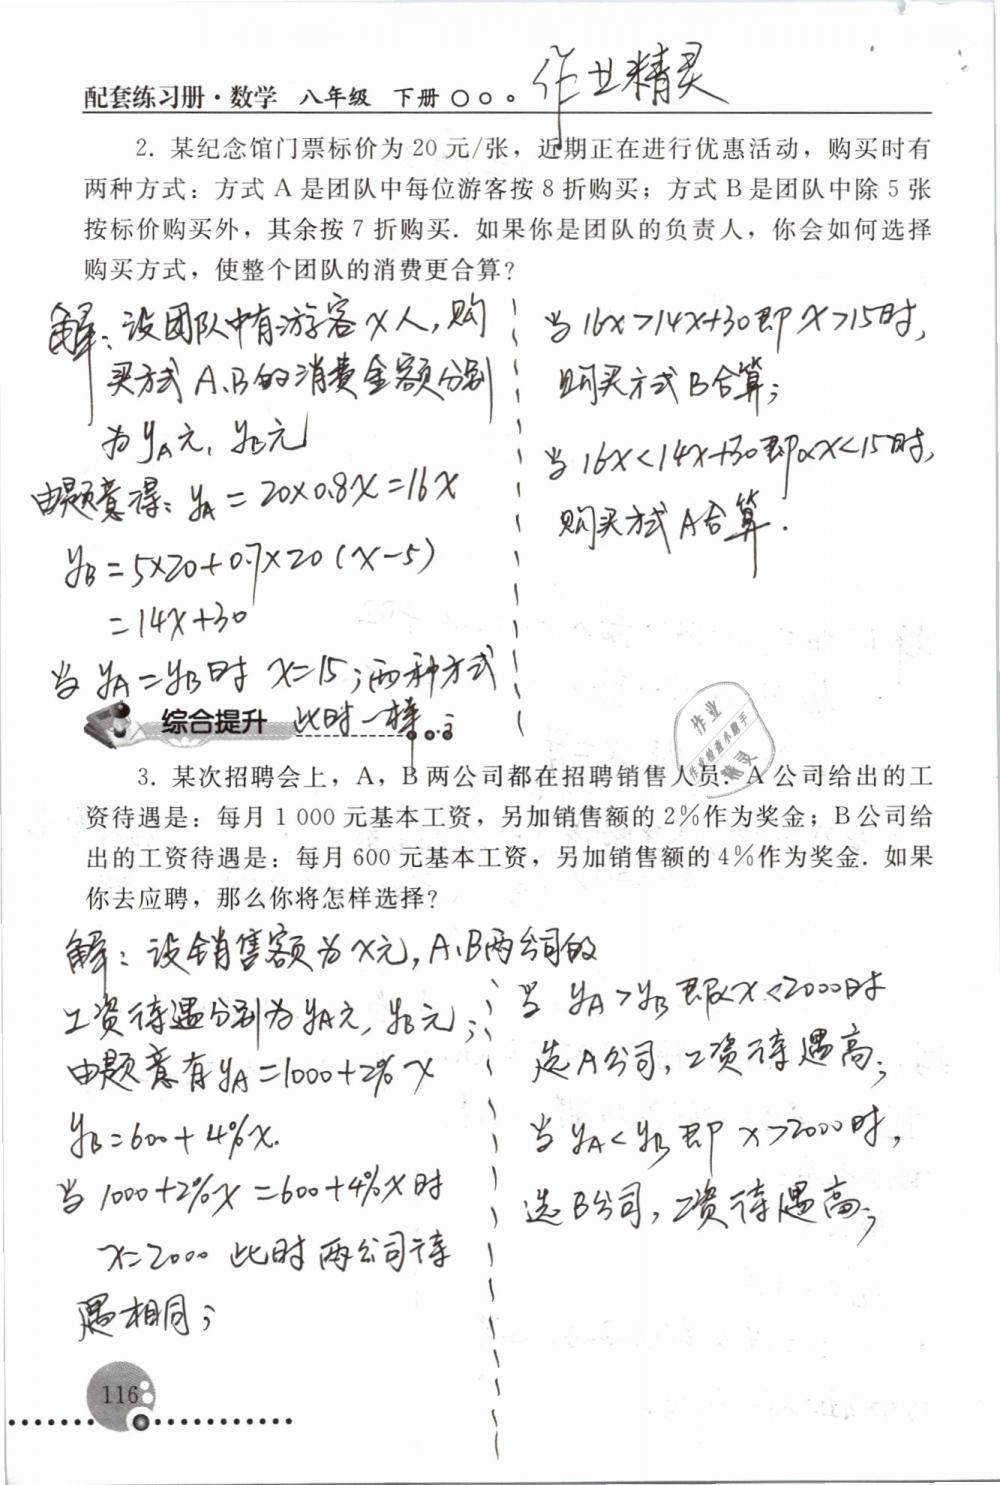 配套练习册·数学 八年级 下册
作业精灵
2. 某纪念馆门票标价为 20 元/张，近期正在进行优惠活动，购买时有
两种方式：方式 A 是团队中每位游客按 8 折购买；方式 B 是团队中除 5 张
按标价购买外，其余按 7 折购买. 如果你是团队的负责人，你会如何选择
购买方式，使整个团队的消费更合算？
解：设团队中有游客x人，购
买方式A、B的消费金额分别
为yA元，yB元
由题意得：yA=20×0.8x=16x
yB=5×20+0.7×20(x-5)
=14x+30
当yA=yB时 x=15；两种方式
此时一样；
当16x>14x+30即x>15时，
购买方式B合算；
当16x<14x+30即x<15时，
购买方式A合算．
综合提升
作业
作业检查小助手
精灵
3. 某次招聘会上，A，B 两公司都在招聘销售人员. A 公司给出的工
资待遇是：每月 1 000 元基本工资，另加销售额的 2%作为奖金；B 公司给
出的工资待遇是：每月 600 元基本工资，另加销售额的 4%作为奖金. 如果
你去应聘，那么你将怎样选择？
解：设销售额为x元，A、B两公司的
工资待遇分别为yA元，yB元；
由题意有yA=1000+2%x
yB=600+4%x.
当1000+2%x=600+4%x时
x=2000 此时两公司待
遇相同；
当yA>yB即x<2000时
选A公司，工资待遇高；
当yA<yB即x>2000时，
选B公司，工资待遇高；
116